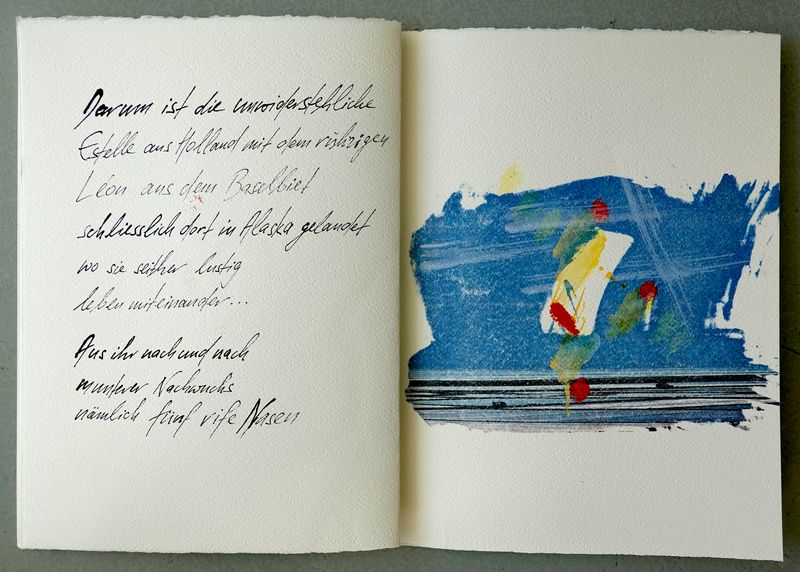 Darum ist die unwiderstehliche
Estelle aus Holland mit dem rührigen
Léon aus dem Baselbiet
schliesslich dort in Alaska gelandet
wo sie seither lustig
leben miteinander...
Aus ihr nach und nach
munterer Nachwuchs
nämlich fünf rife Nasen